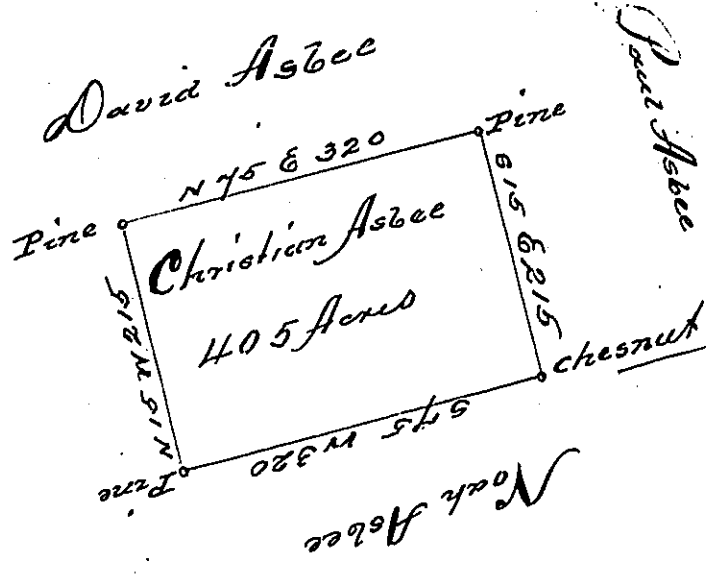 David Asbee
Paul Asbee
Pine
N 75 E 320
Pine
S 15 E 215
Christian Asbee
405 Acres
N 15 W 215
chesnut
S 75 W 320
Pine
Noah Asbee